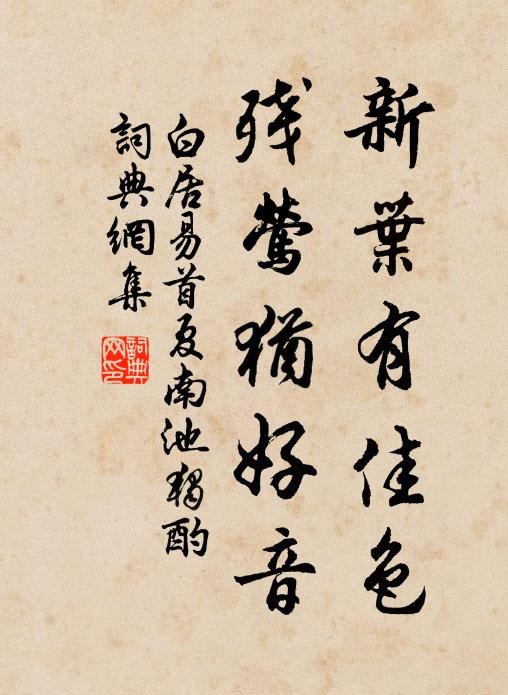 新葉有佳色
殘鶯猶好音
白居易首夏南池獨酌
詞典網集
詞典
网印